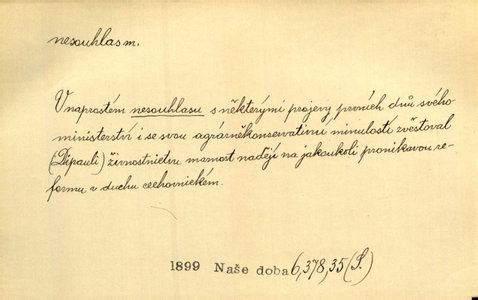 nesouhlas m.
V naprostém nesouhlasu s některými projevy prvních dnů svého
ministerství i se svou agrárněkonservativní minulostí zvěstoval
(Dipauli) živnostnictvu marnost nadějí na jakoukoli pronikavou re-
formu v duchu cechovnickém.
1899 Naše doba 6,378,35 (S.)